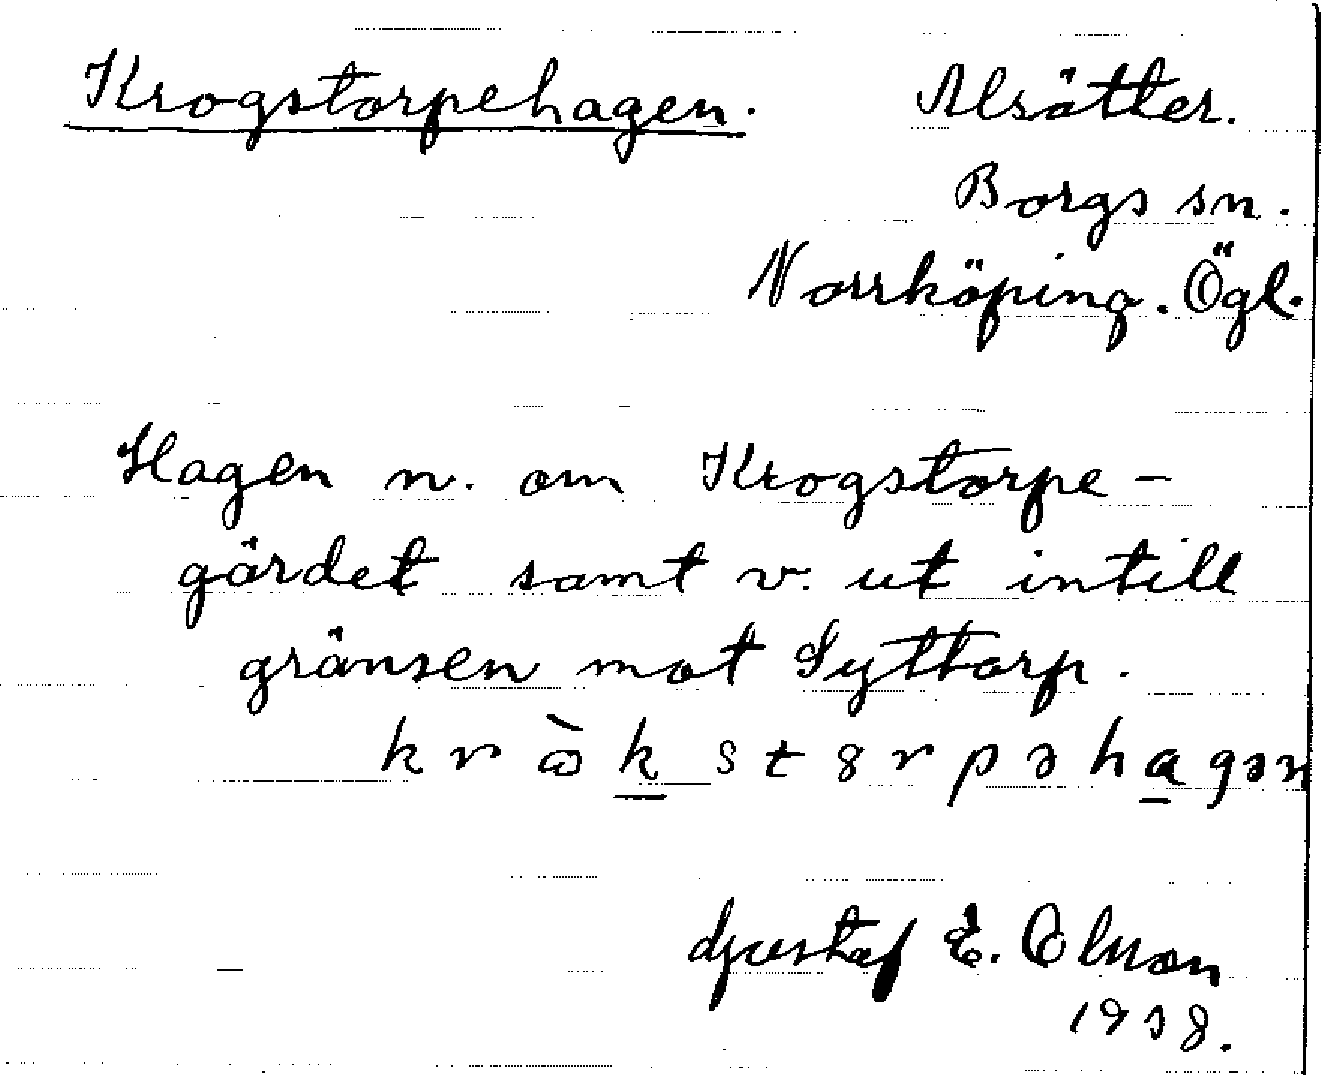 Krogstorpehagen. Alsätter.
Borgs sn.
Norrköping. Ögl.
Hagen n. om Krogstorpe-
gärdet samt v. ut intill
gränsen mot Syttorp.
kråkstorpəhagən
Gustaf E. Olsson
1938.